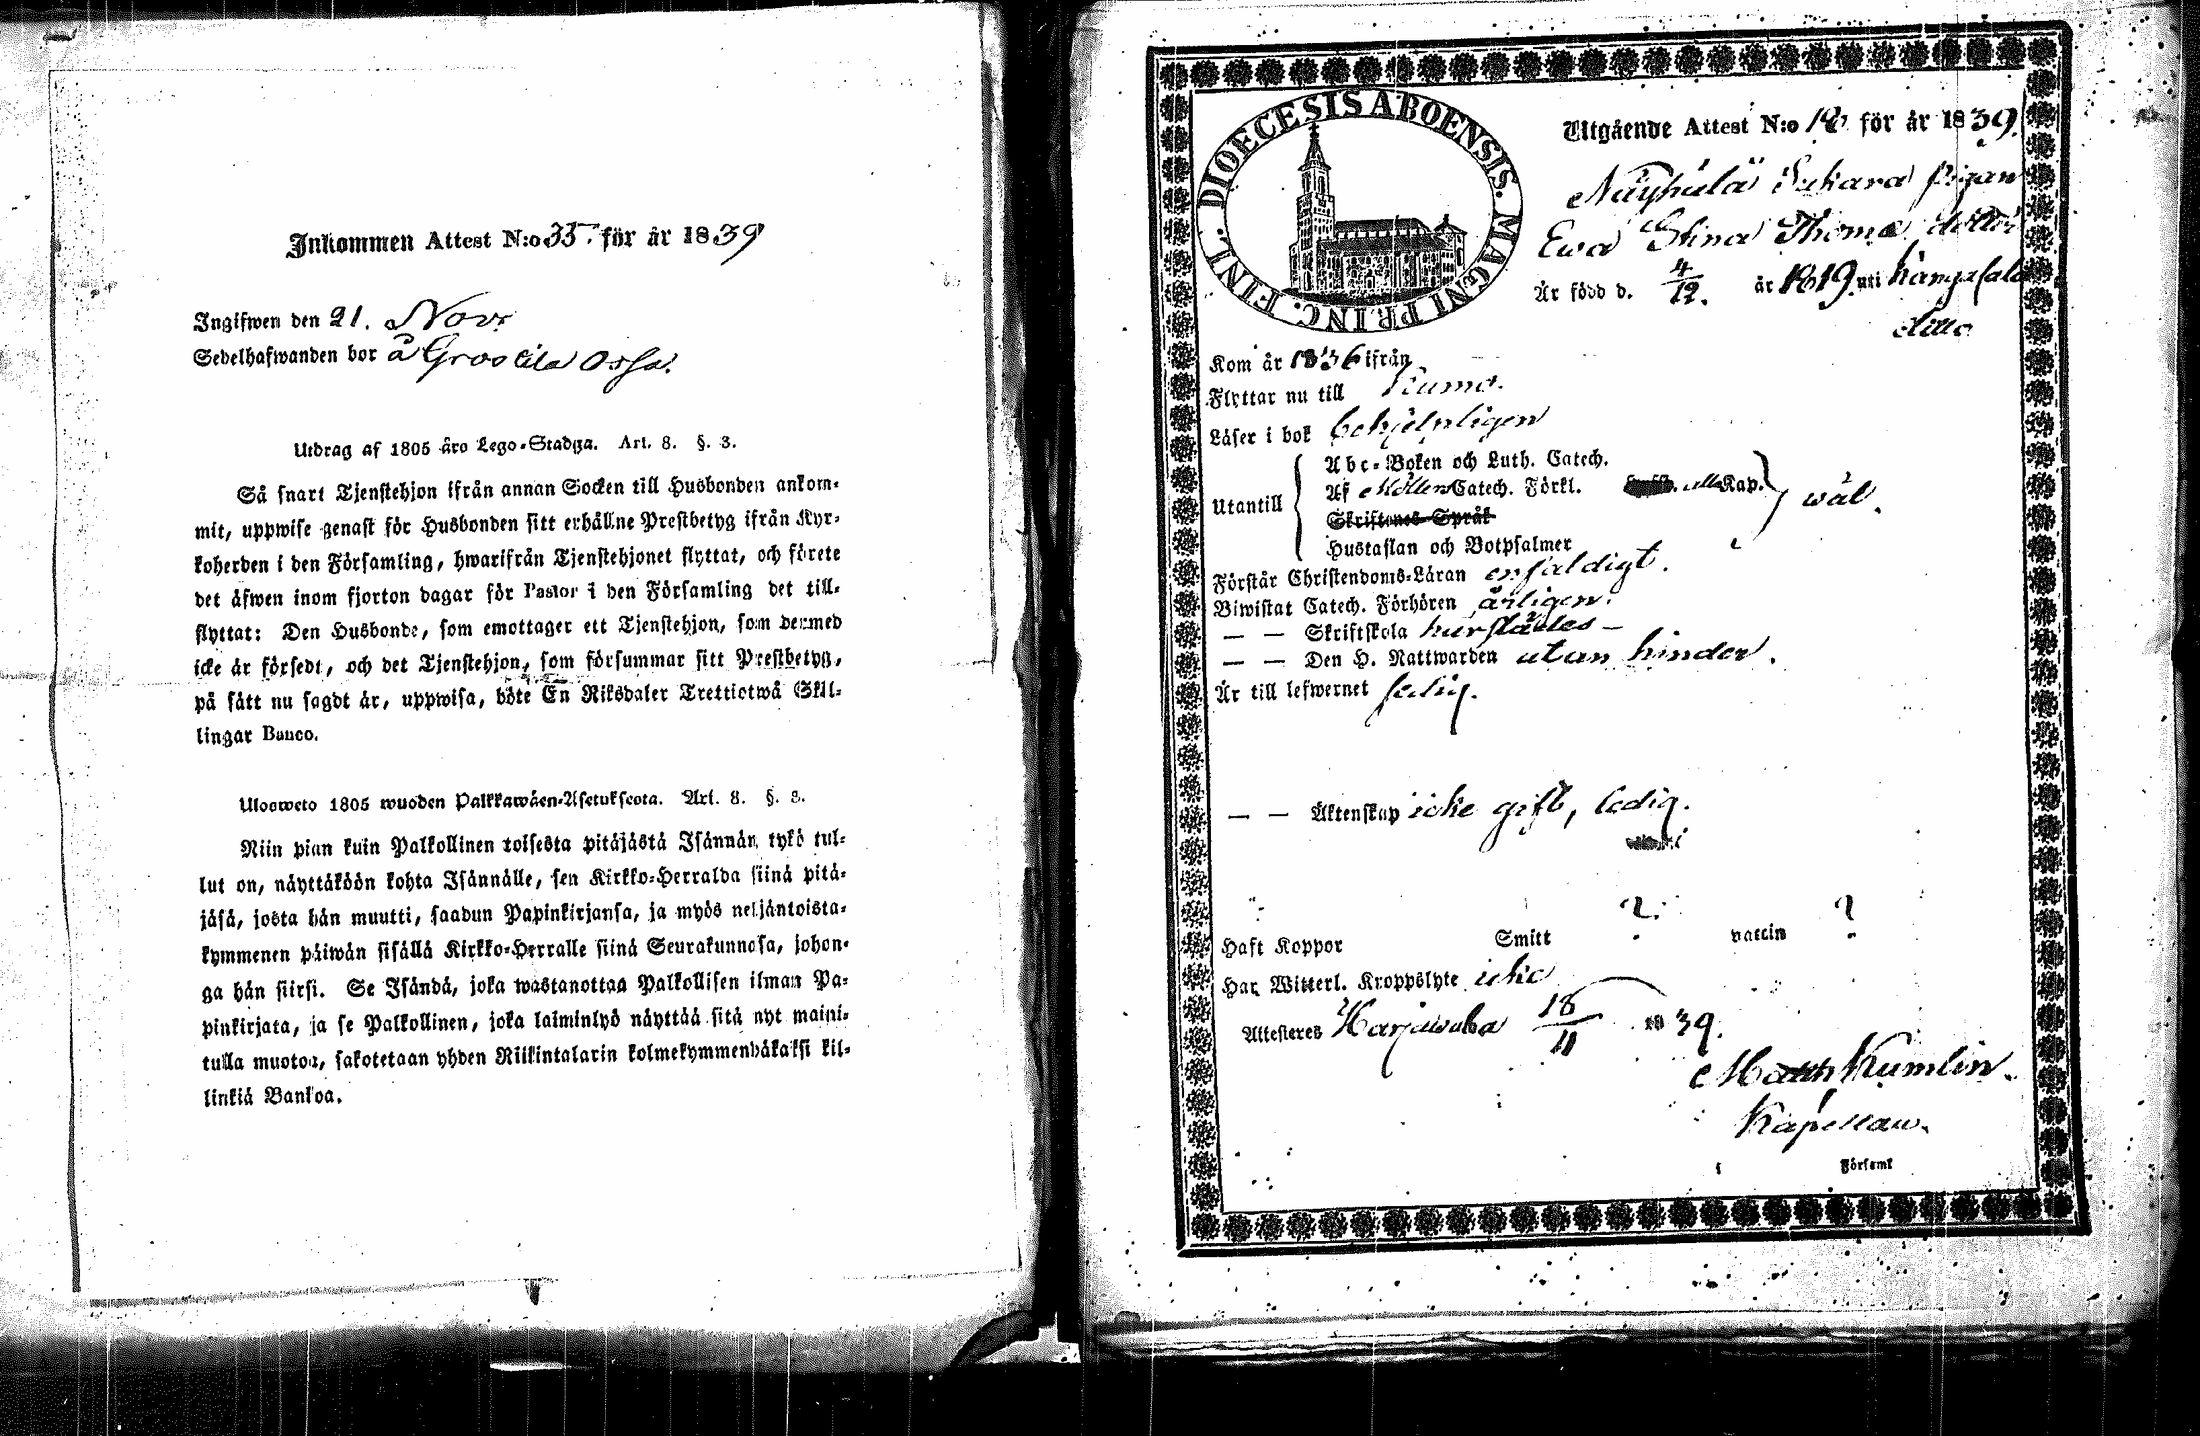 Inkommen Attest N:o 35. för år 1839
Ingifwen den 21. Nov.
Sedelhafwanden bor å Groslila Ossa.
Utdrag af 1805 års Lego-Stadga. Art. 8. §. 3.
Så snart Tjenstehjon ifrån annan Socken till Husbonden ankom-
mit, uppwise genast för Husbonden sitt erhållne Prestbetyg ifrån Kyr-
koherden i den Församling, hwarifrån Tjenstehjonet flyttat, och förete
det äfwen inom fjorton dagar för Pastor i den Församling det till-
flyttat: Den Husbonde, som emottager ett Tjenstehjon, som dermed
icke är försedt, och det Tjenstehjon, som försummar sitt Prestbetyg,
på sätt nu sagdt är, uppwisa, böte En Riksdaler Trettiotwå Skil-
lingar Banco.
Ulosweto 1805 wuoden Palkkawäen-Asetuksesta. Art. 8. §. 3.
Niin pian kuin Palkollinen toisesta pitäjästä Isännän tykö tul-
lut on, näyttäköön kohta Isännälle, sen Kirkko-Herralda siinä pitä-
jäsä, josta hän muutti, saadun Papinkirjansa, ja myös neljäntoista-
kymmenen päiwän sisällä Kirkko-Herralle siinä Seurakunnasa, johon-
ga hän siirsi. Se Isändä, joka wastanottaa Palkollisen ilman Pa-
pinkirjata, ja se Palkollinen, joka laiminlyö näyttää sitä nyt maini-
tulla muotoa, sakotetaan yhden Riikintalarin kolmekymmendäkaksi kil-
linkiä Bankoa.
DIOECESIS ABOENSIS. MAGNI PRINC. FINL.
Utgående Attest N:o 18 för år 1839.
Sukara pigan
Ewa Stina Thomæ dotter
Är född d. 4/12. år 1819 uti Kangasala
ditto
Kom år 1836 ifrån
Flyttar nu till Kumo.
Läser i bok behjelpligen
Utantill
Abc-Boken och Luth. Catech.
Af Möllers Catech. Förkl. alla Kap. wäl.
Skriftenes Språk
Hustaflan och Botpsalmer
Förstår Christendoms-Läran enfaldigt.
Biwistat Catech. Förhören årligen.
— — Skriftskola härstädes —
— — Den H. Nattwarden utan hinder.
Är till lefwernet sedig.
— — Äktenskap icke gift, ledig.
Haft Koppor Smitt ? vaccin ?
Har Witterl. Kroppslyte icke
Attesteres Harjawalta 18/11 1839.
Matth Kumlin.
Kapellan.
Församl